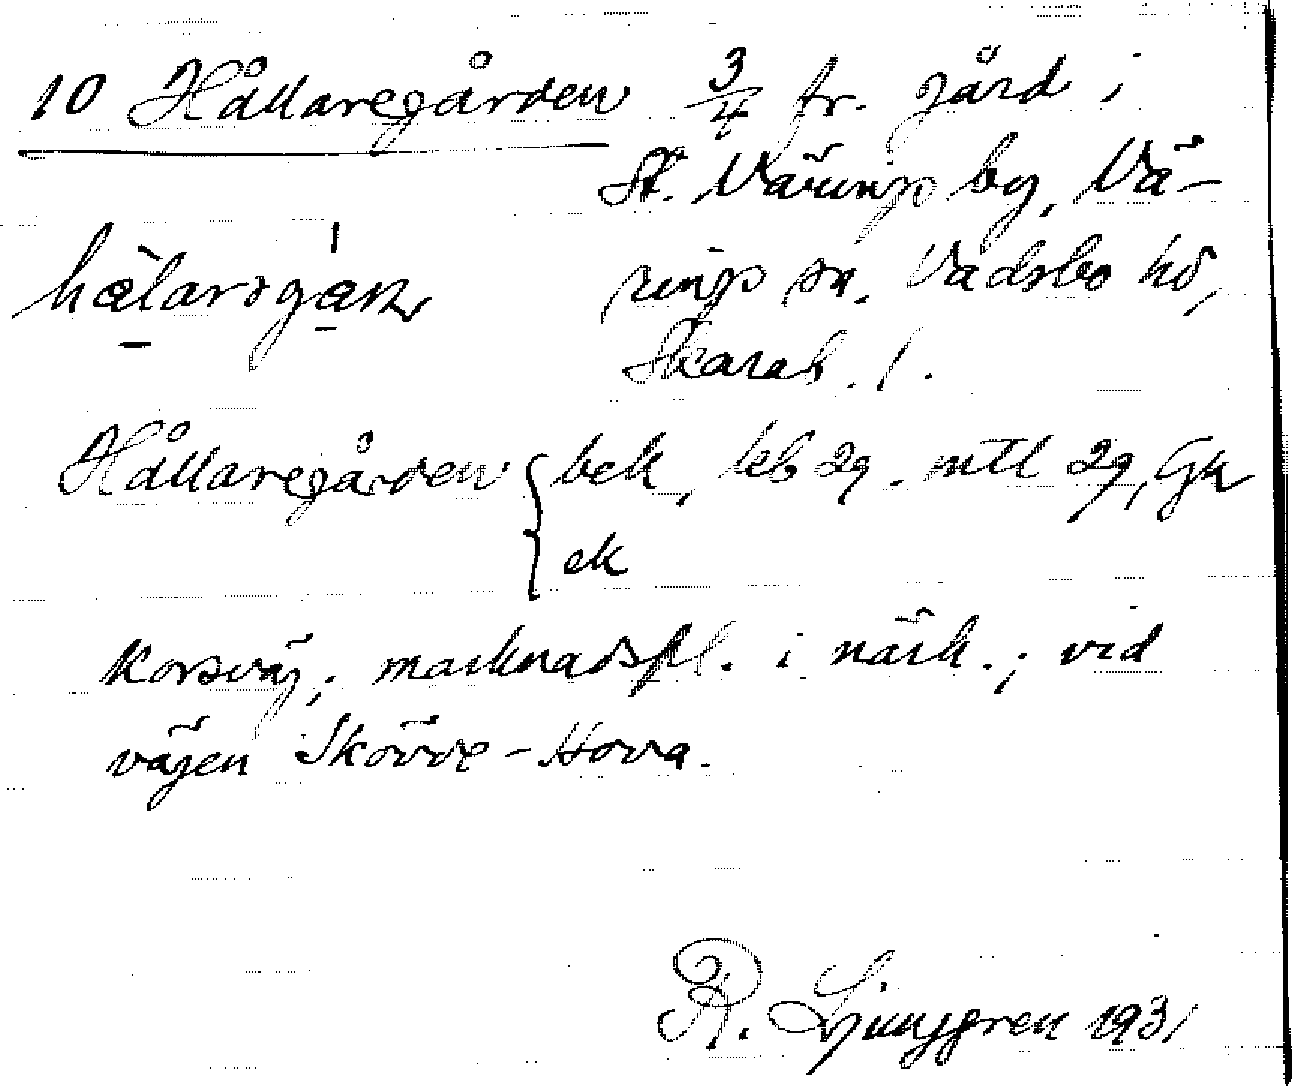 10 Hållaregården 3/4 fr. gård i
St. Värings by, Vä-
rings sn. Vadsbo hd,
Skarab. l.
Hållaregården { bek, leb 29. mtl 29, Gk
ek
korsväg; marknadspl. i närh.; vid
vägen Skövde-Hova.
R. Ljunggren 1931